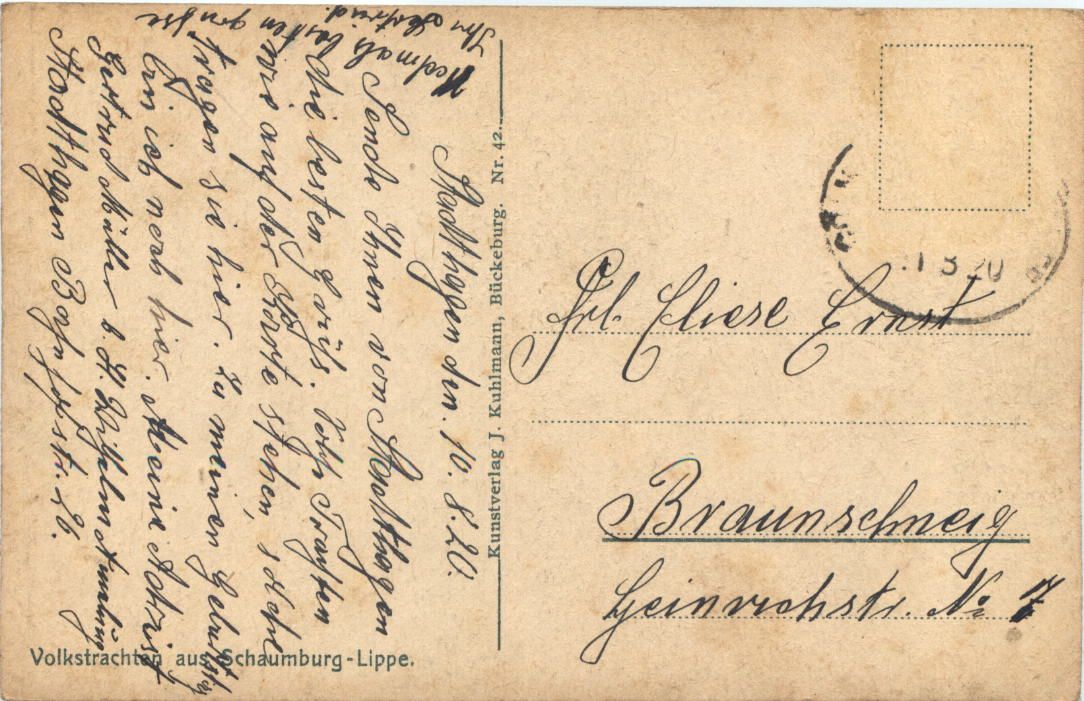 Stadthagen den. 10. 8. 20.
Sende Ihnen von Stadthagen
die besten Grüße. Solche Trachten
wie auf der Karte stehen, solche
tragen sie hier. Zu meinen Geburtstag
bin ich noch hier. Meine Adrist
Gertrud Müller b. H. Wilhelm
Stadthagen Bahnhofstr. 26.
Nochmals besten Grüße
Ihre Gertrud.
Kunstverlag J. Kuhlmann, Bückeburg. Nr. 42.
Volkstrachten aus Schaumburg-Lippe.
Frl. Eliese Ernst
Braunschweig
Heinrichstr. No 7